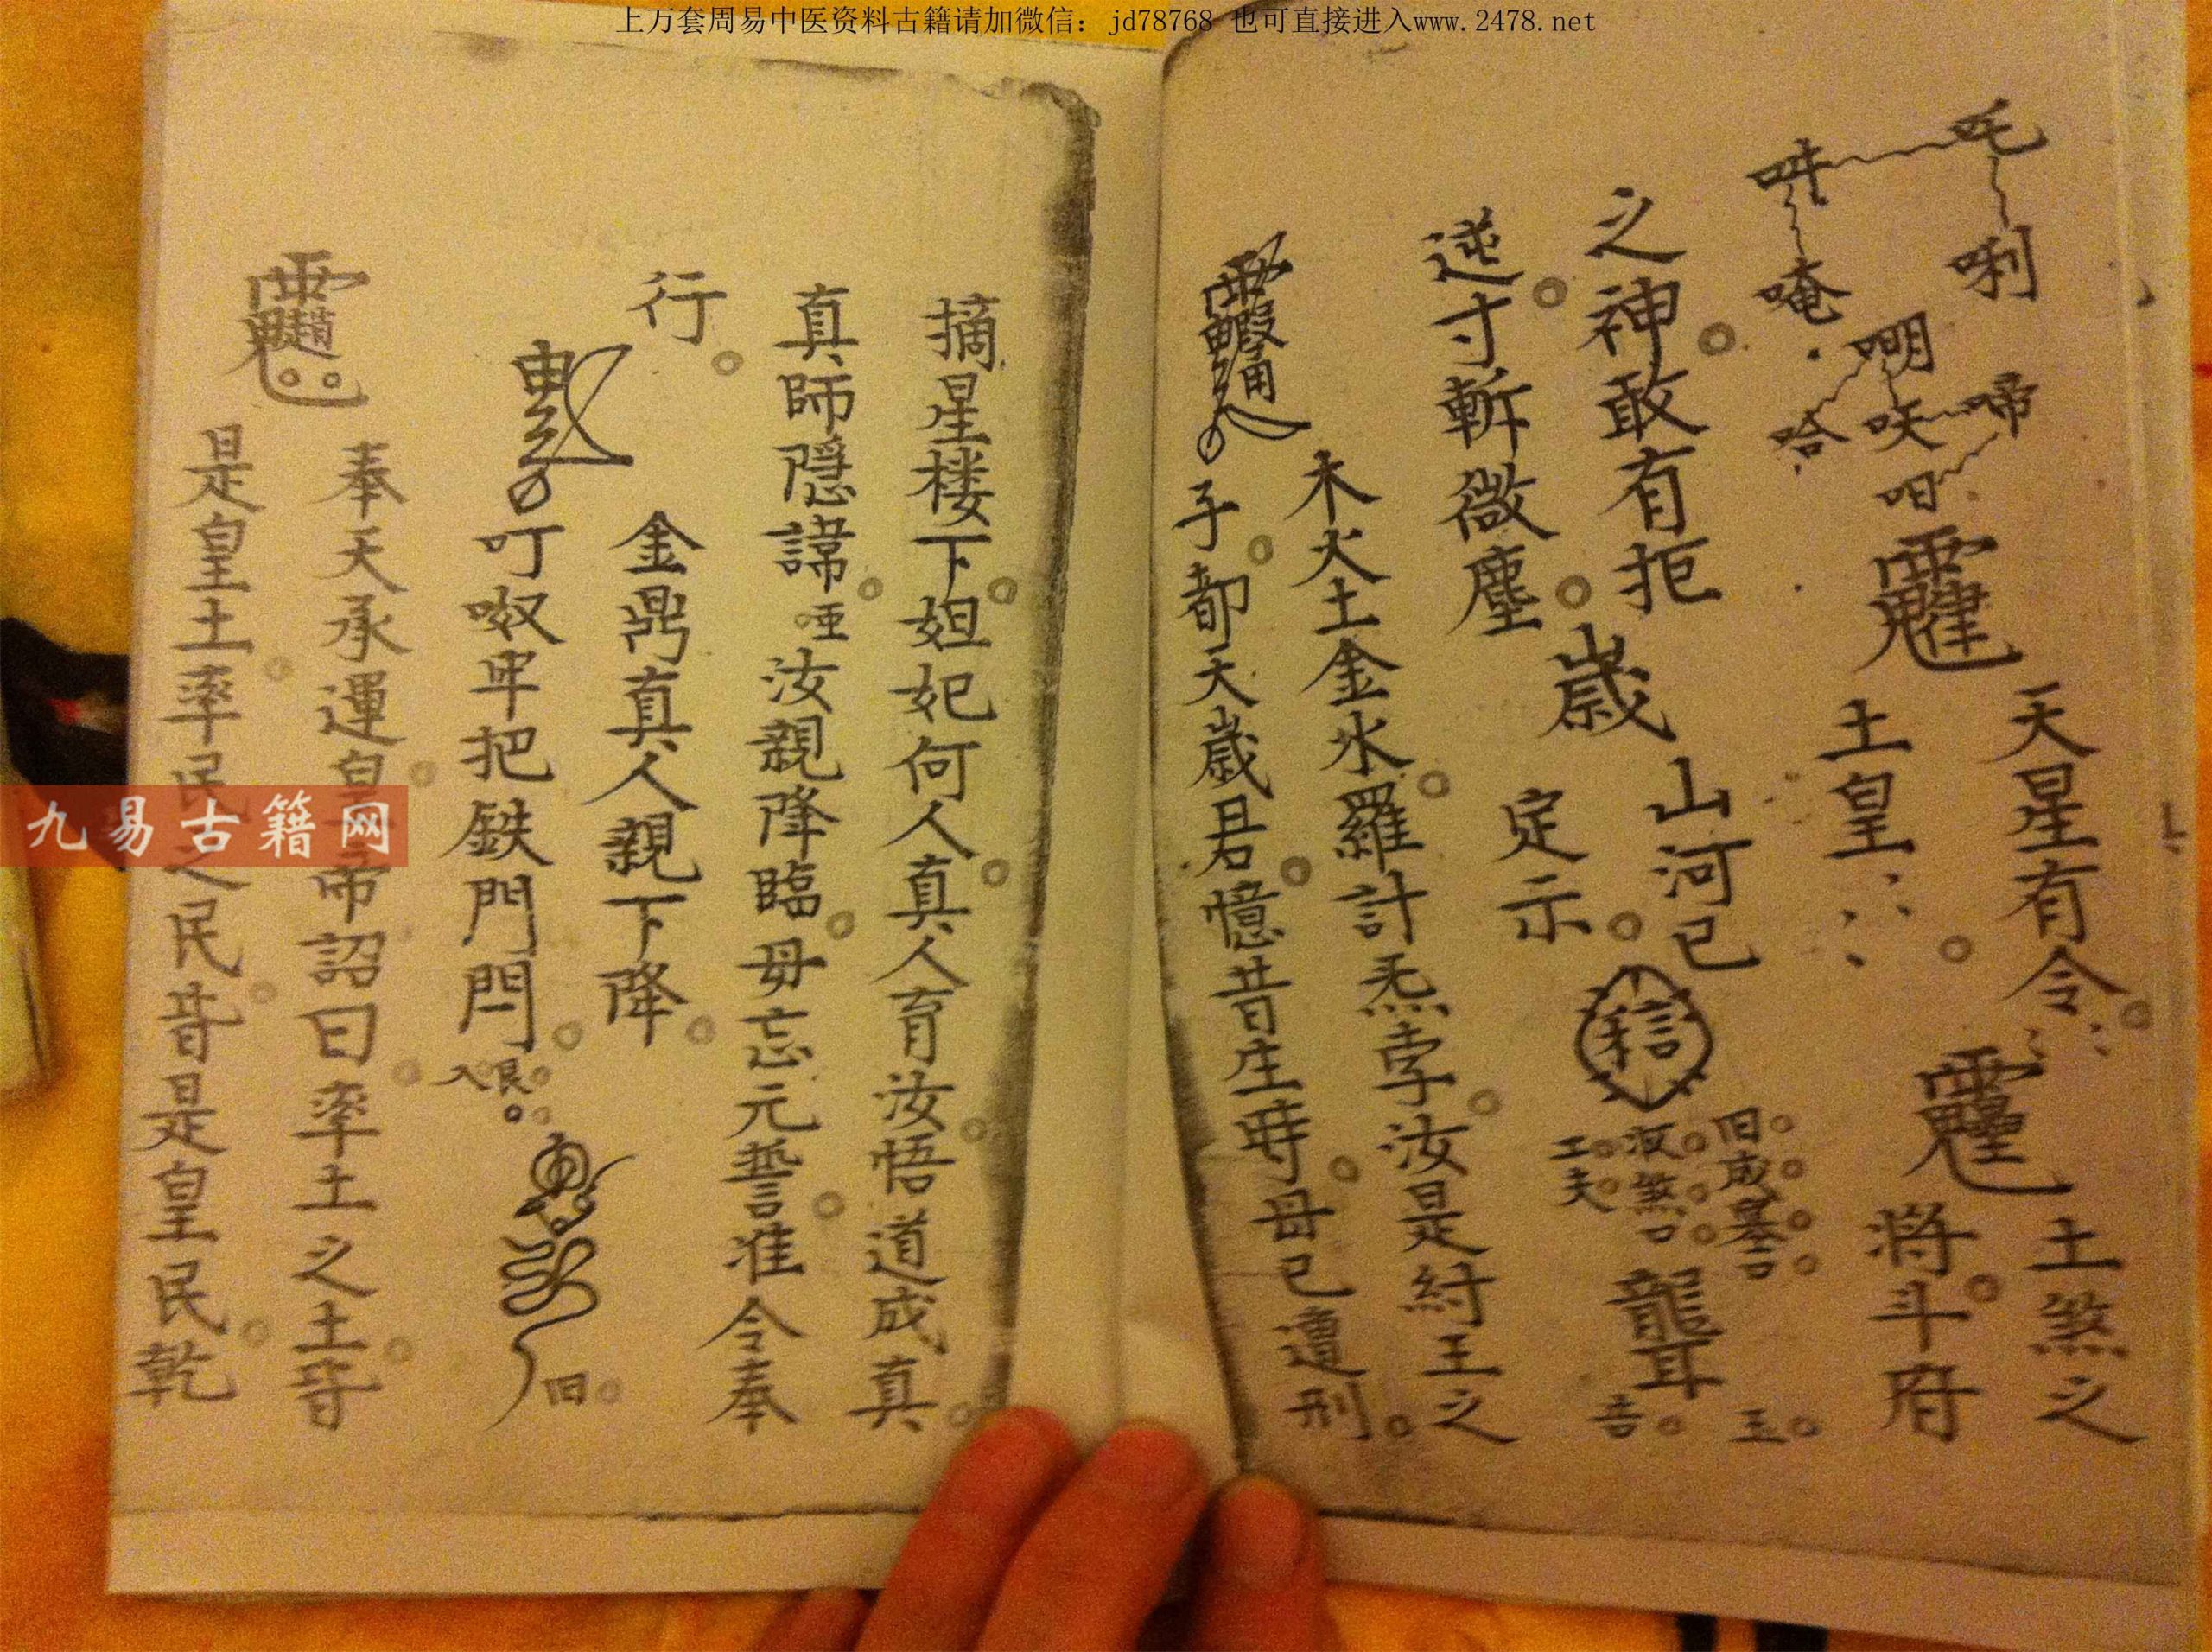 上万套周易中医资料古籍请加微信：jd78768 也可直接进入www.2478.net
吒 唎
吽 唵
嘲 呋 啼
哈 呾
天星有令
土煞之
土皇
將斗府
之神敢有拒
山河已
旧
玉
逆寸斬微塵
歲
定示
信
煞口
工夫
吉
木火土金水羅計炁孛汝是紂王之
子都天歲君憶昔生時母已遭刑
摘星楼下妲妃何人真人育汝悟道成真
真師隱諱 唖 汝親降臨毋忘元誓准令奉
行
金鼎真人親下降
叮呶牢把鉄門閂
入艮
旧
奉天承運皇帝詔曰率土之土皆
是皇土率民之民皆是皇民乾
九易古籍网